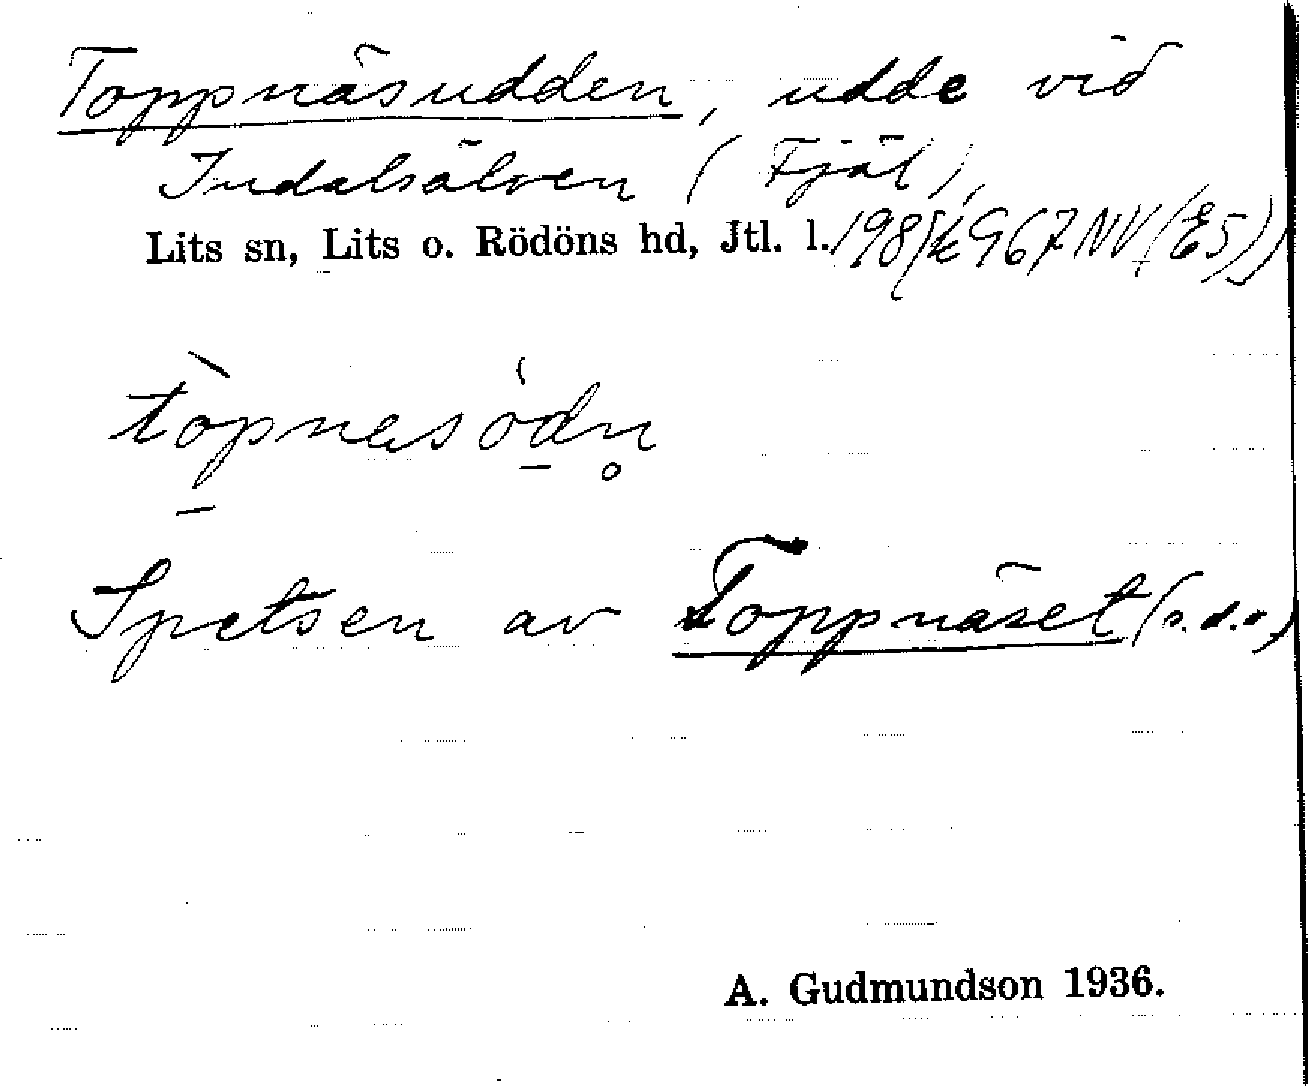 Toppnäsudden, udde vid
Indalsälven (Fjäl),
Lits sn, Lits o. Rödöns hd, Jtl. l.
tòpnesödn̥
Spetsen av Toppnäset (s.d.o)
A. Gudmundson 1936.